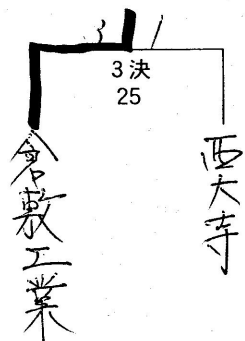 3 1
3決
25
倉敷工業
西大寺